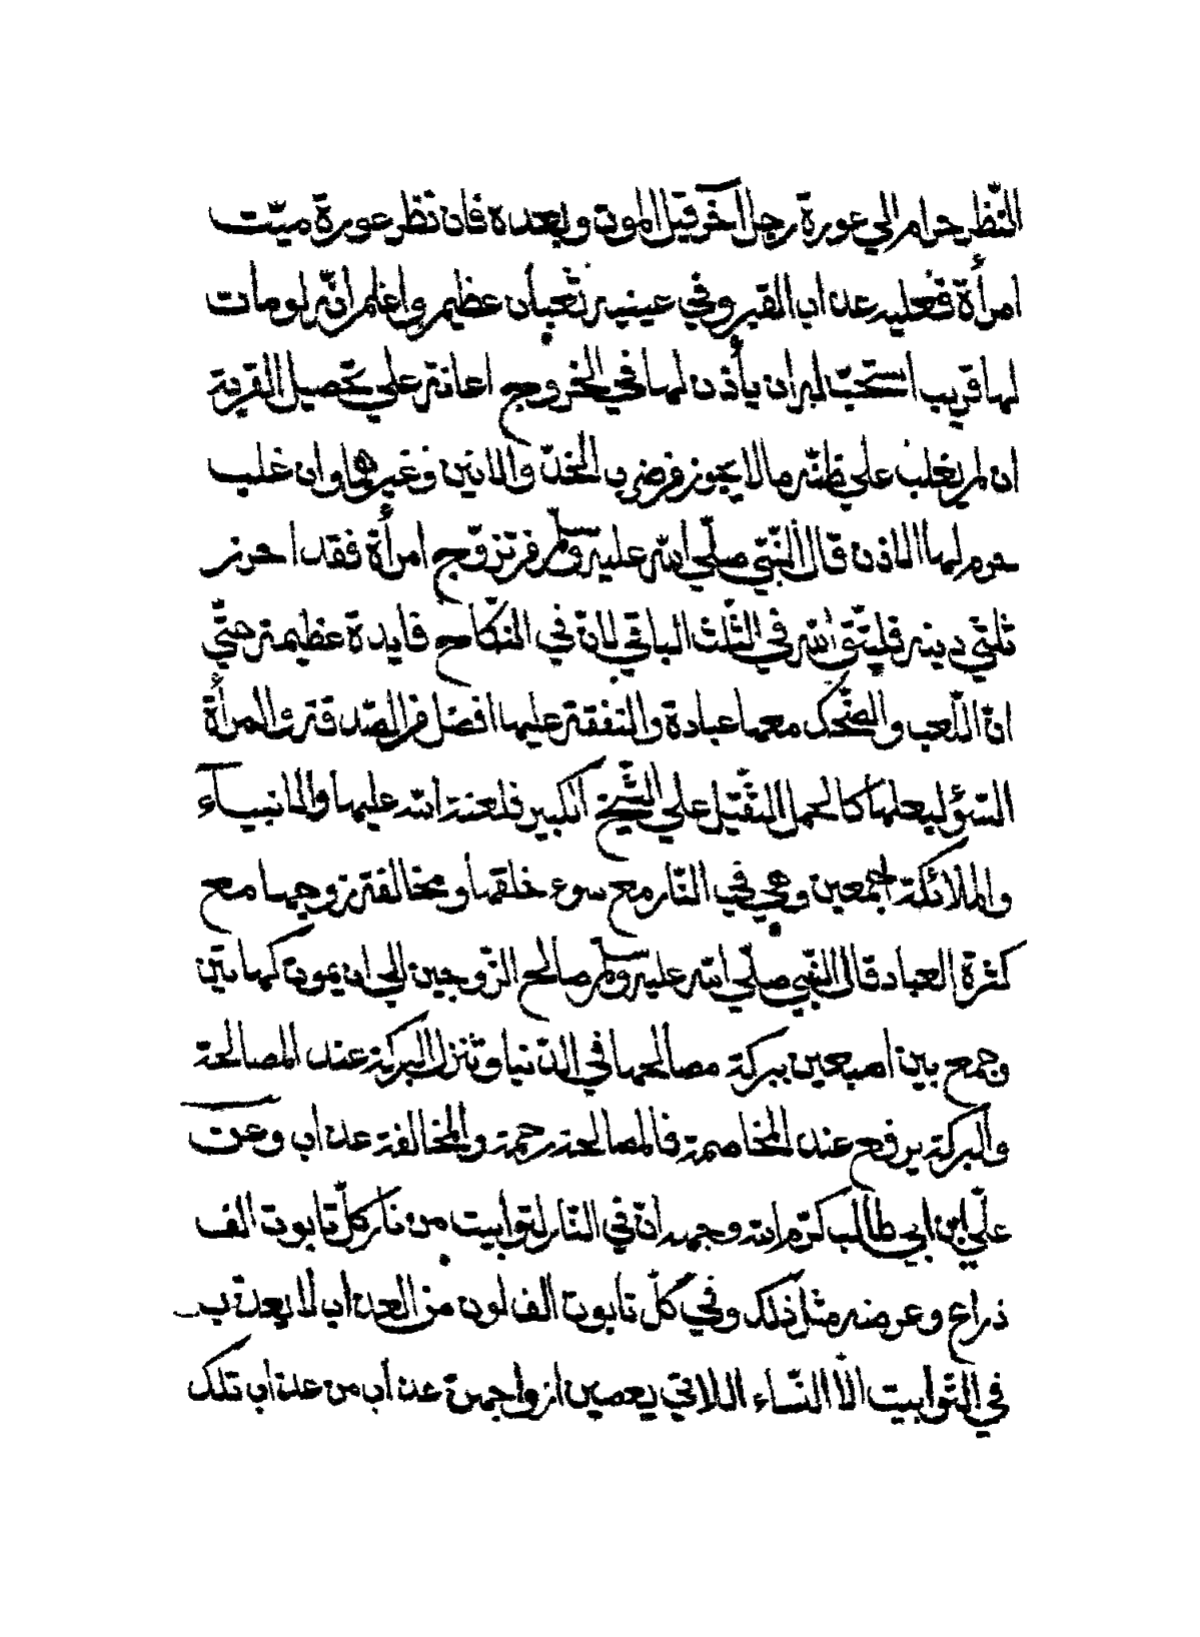 النّظر حرام الي عورة رجل آخر قبل الموت وبعده فان نظر عورة ميّت
امرأة فعليه عذاب القبر وفي عينيه ثعبان عظيم واعلم انّه لو مات
لها قريب استحبّ له ان يأذن لها في الخروج اعانة علي تحصيل القربة
ان لم يغلب علي ظنّه ما لا يجوز من ضرب الخدّ والانين وغيرهما وان غلب
حرم لها الاذن قال النّبيّ صلّي الله عليه وسلم من تزوّج امرأة فقد احرز
ثلثي دينه فليتّق الله في الثّلث الباقي لانّ في النّكاح فايدة عظيمة حتّي
انّ اللّعب والضّحك معها عبادة والنفقة عليها افضل من الصّدقة والمرأة
السّوٴ لبعلها كالحمل الثقيل علي الشّيخ الكبير فلعنة الله عليها والانبيآء
والملائكة اجمعين وهي في النّار مع سوء خلقها ومخالفة زوجها مع
كثرة العباد قال النّبي صلّي الله عليه وسلم صالح الزّوجين الي ان يموت كهاتين
وجمع بين اصبعين ببركة مصالحهما في الدّنيا وتنزل البركة عند المصالحة
والبركة يرفع عند المخاصمة فالمصالحة رحمة والمخالفة عذاب وعن
عليّ ابن ابي طالب كرّم الله وجهه انّ في النّار لتوابيت من نار كلّ تابوت الف
ذراع وعرضه مثل ذلك وفي كلّ تابوت الف لون من العذاب لا يعذّب
في التّوابيت الّا النّساء اللاتي يعصين ازواجهن عذاب من عذاب تلك